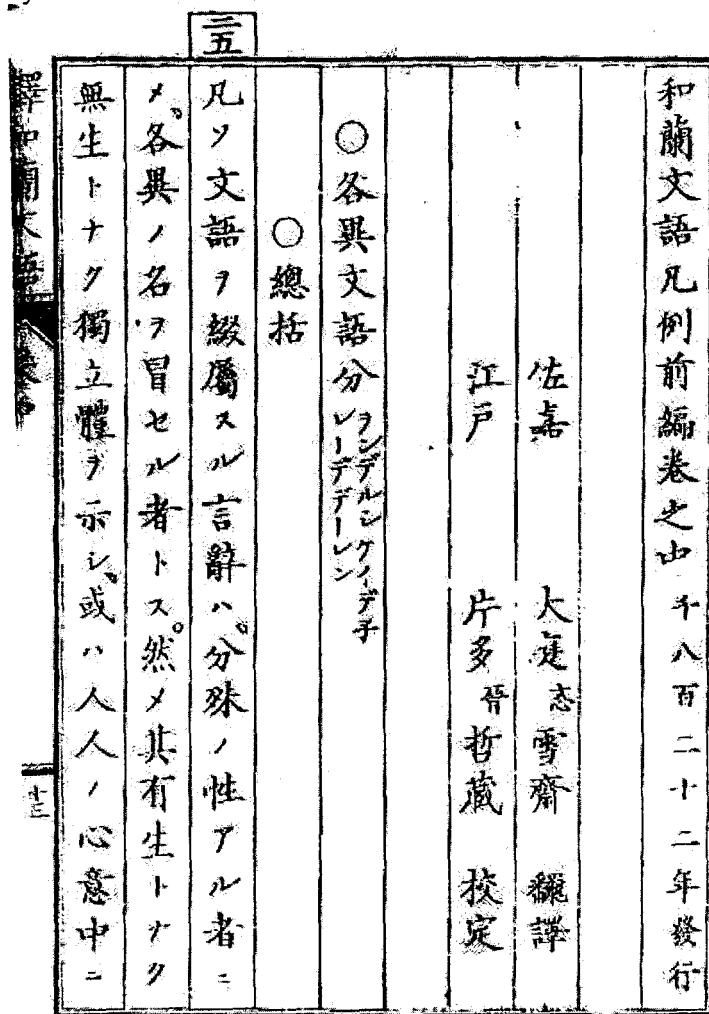 和蘭文語凡例前編卷之中 千八百二十二年發行
佐嘉 大庭 忞 雪齋 飜譯
江戸 片多 哲藏 校定
○各異文語分 ヲンデルシケイデ子
レーデデーレン
○總括
三五
凡ソ文語ヲ綴屬スル言辭ハ。分殊ノ性アル者ニ
メ。各異ノ名ヲ冒セル者トス。然メ其有生トナク
無生トナク獨立體ヲ示シ。或ハ人人ノ心意中ニ
譯和蘭文語
十三